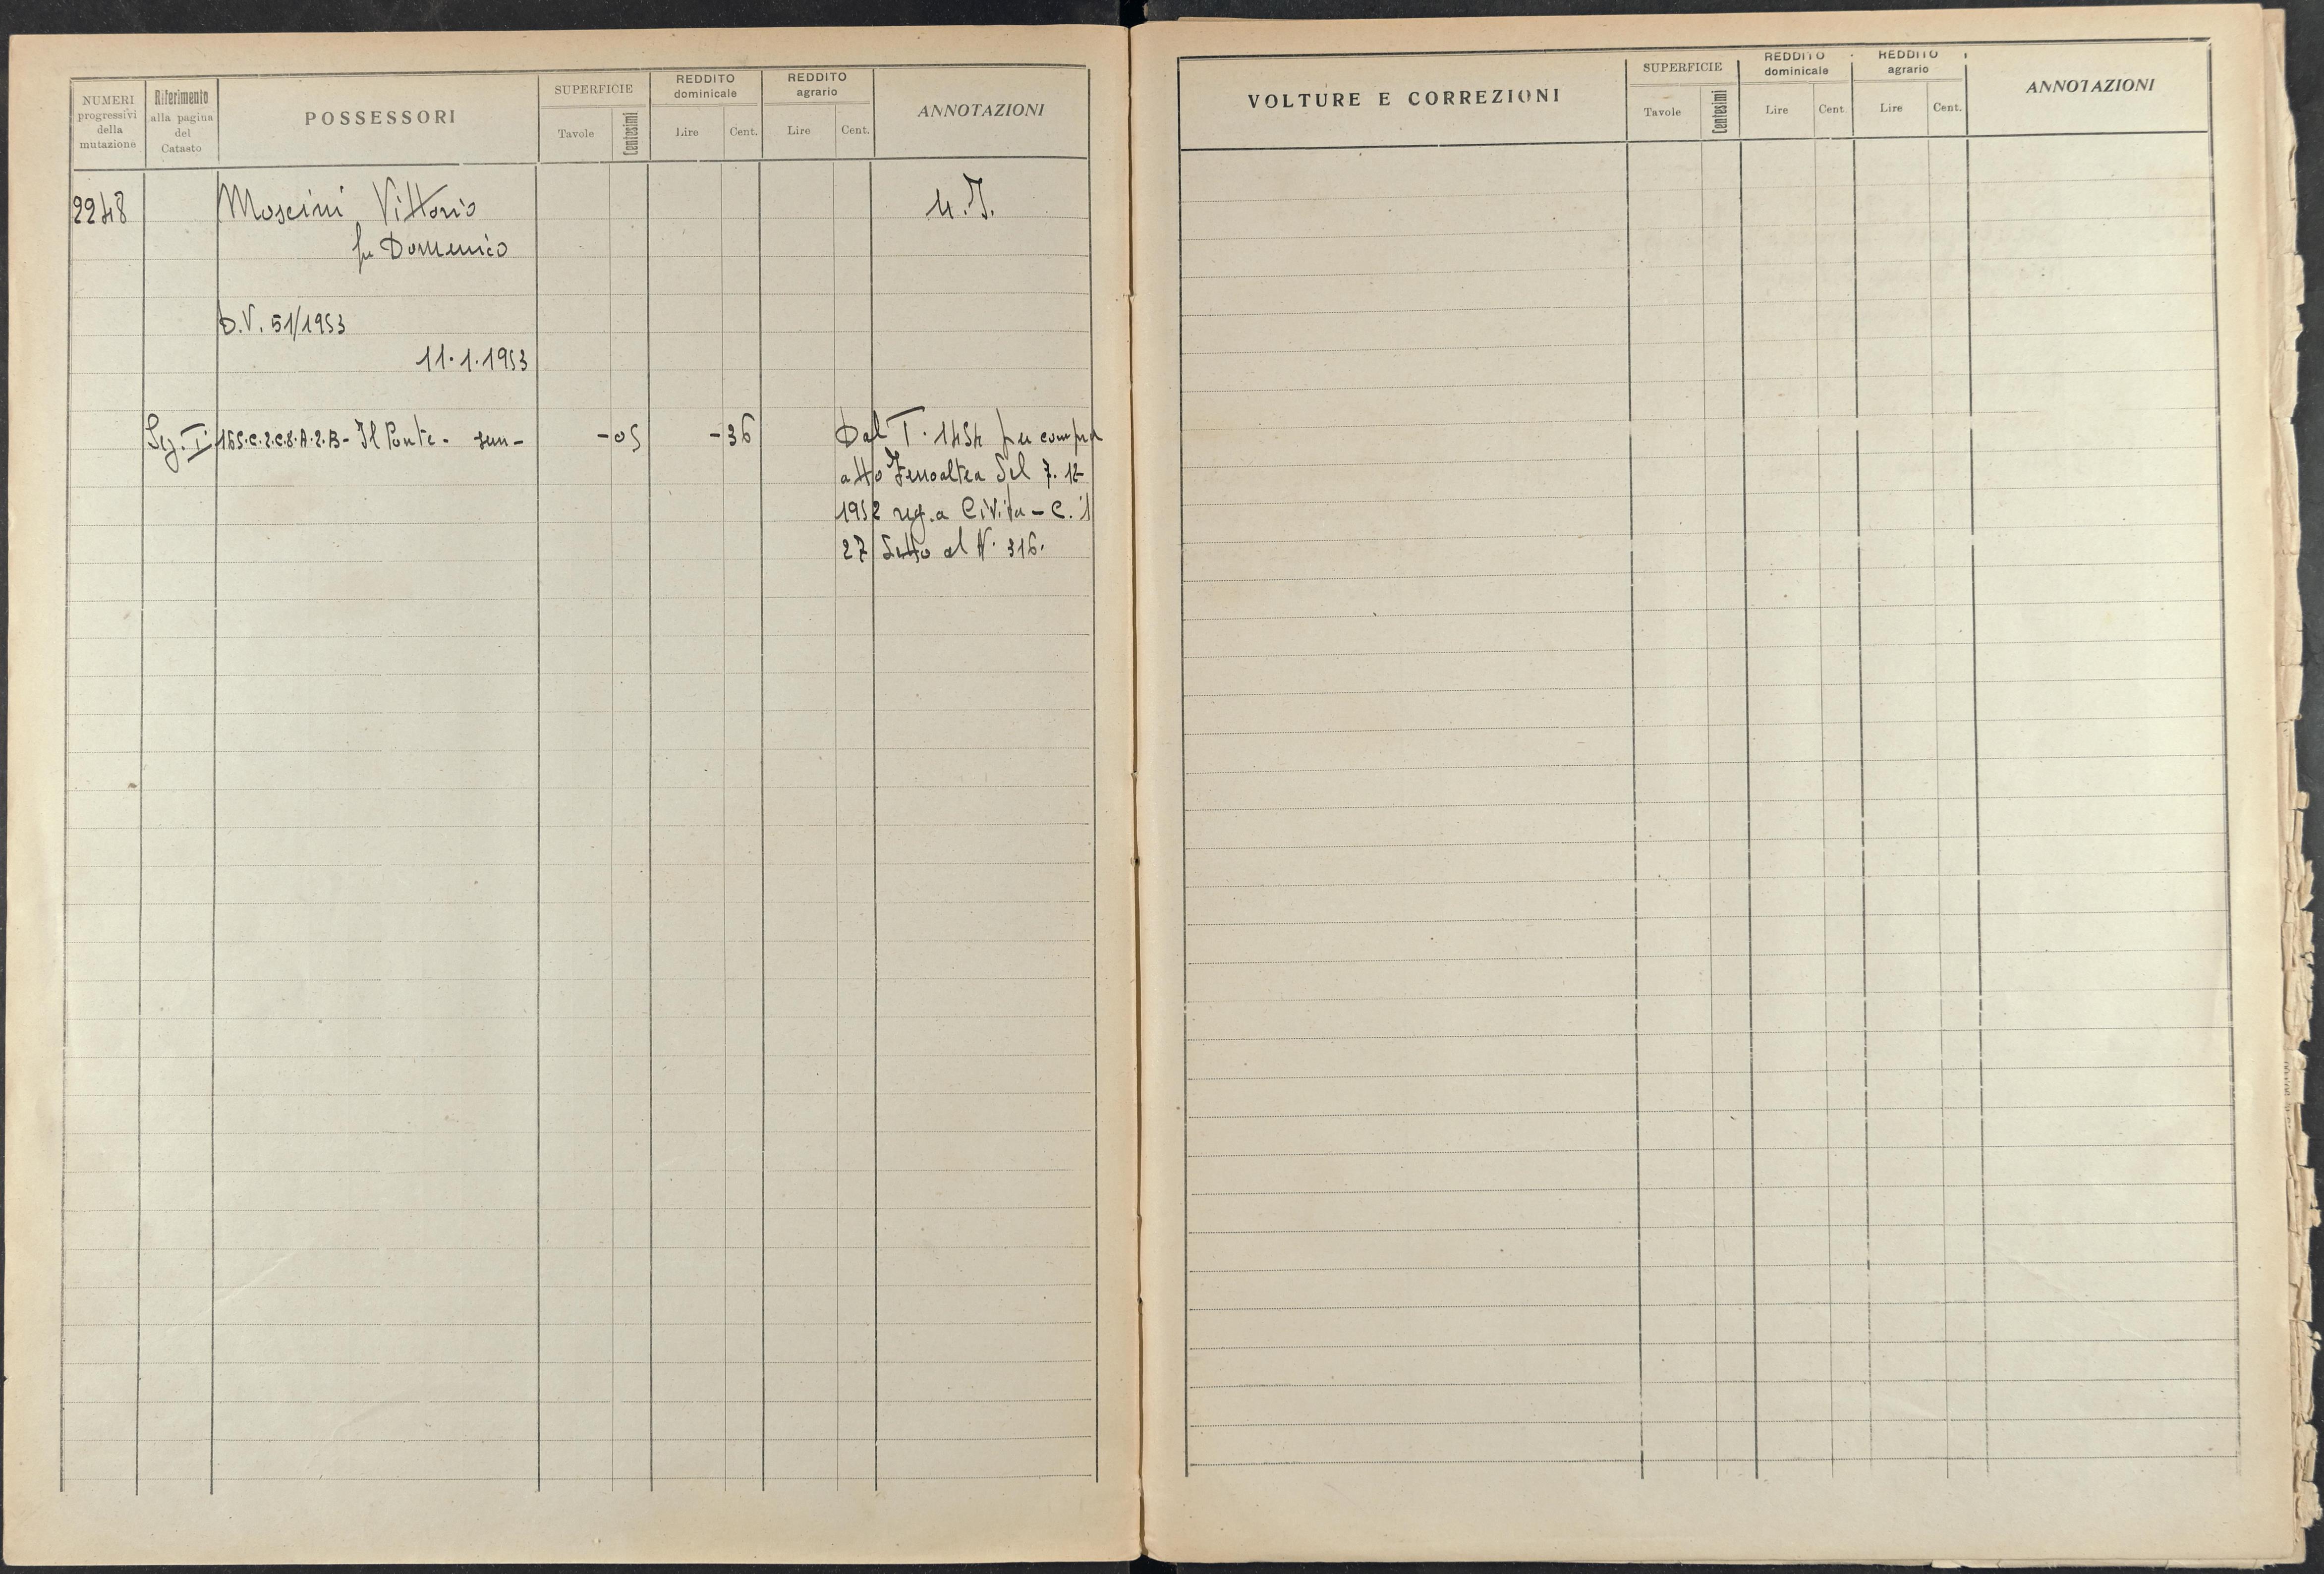 NUMERI progressivi della mutazione
Riferimento alla pagina del Catasto
POSSESSORI
SUPERFICIE
Tavole
Centesimi
REDDITO dominicale
Lire
Cent.
REDDITO agrario
Lire
Cent.
ANNOTAZIONI
2248
Moscini Vittorio
fu Domenico
U.I.
D.V. 51/1953
11.1.1953
Sez. I 165.C.2.C.8.A.2.B - Il Ponte - sem - - 05 - 36 Dal T. 1454 per compra
atto Zenoaltea del 7.12
1952 reg. a Civita - C. il
27 detto al N. 316.
VOLTURE E CORREZIONI
SUPERFICIE
Tavole
Centesimi
REDDITO dominicale
Lire
Cent.
REDDITO agrario
Lire
Cent.
ANNOTAZIONI